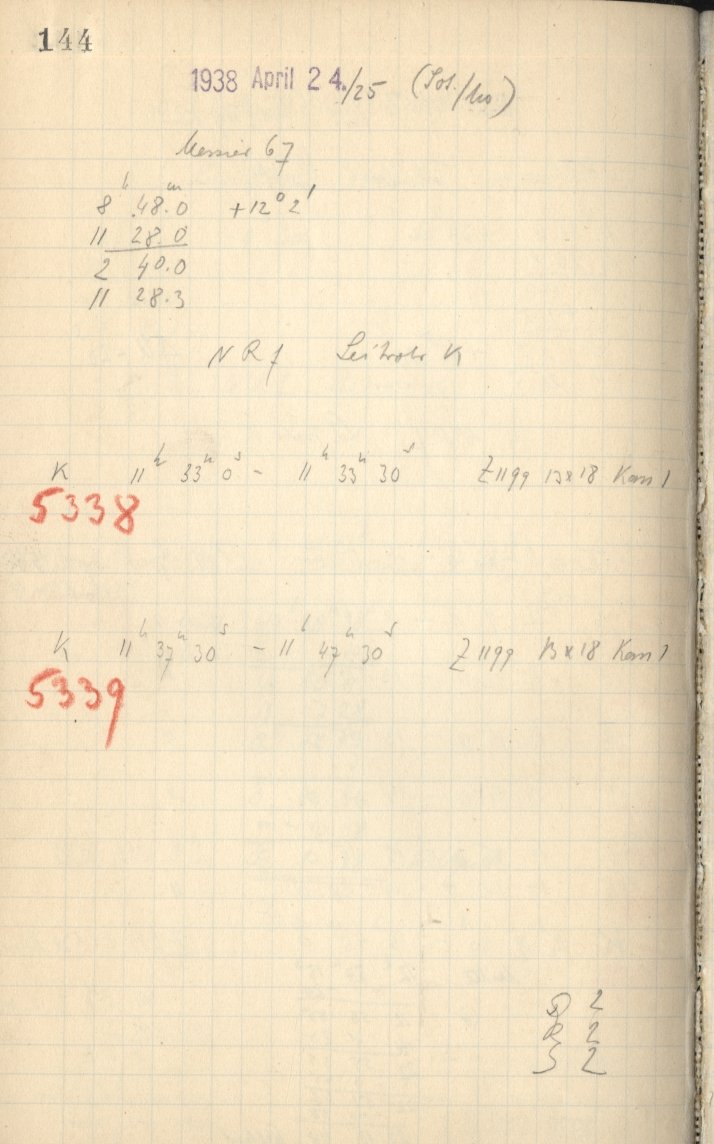 144
1938 April 24./25
Messier 67
8h 48.0m +12° 2'
11 28.0
2 40.0
11 28.3
N R f Leitrohr K
K 11h 33m 0s - 11h 33m 30s Z1199 13x18
5338
K 11h 37m 30s - 11h 47m 30s Z1199 13x18
5339
2
R 2
S 2